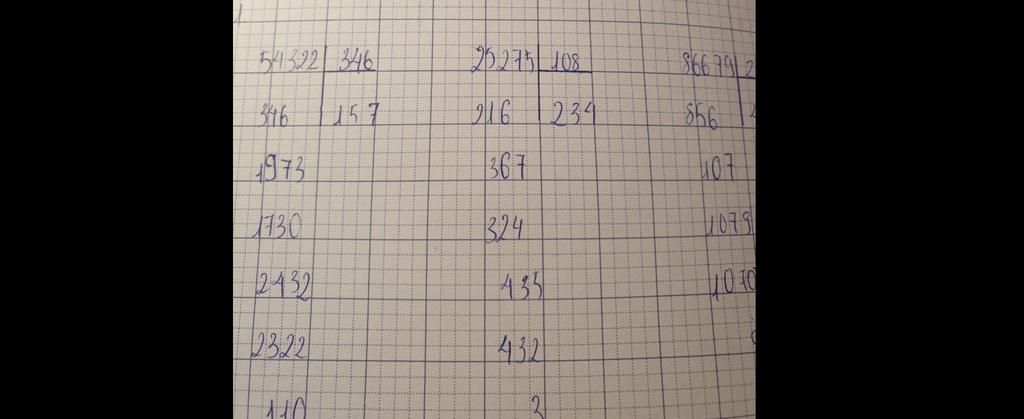 1.
54322 346 25275 108 86679 2
346 157 216 234 856
1973 367 107
1730 324 1079
2432 435 1070
2322 432
110 3